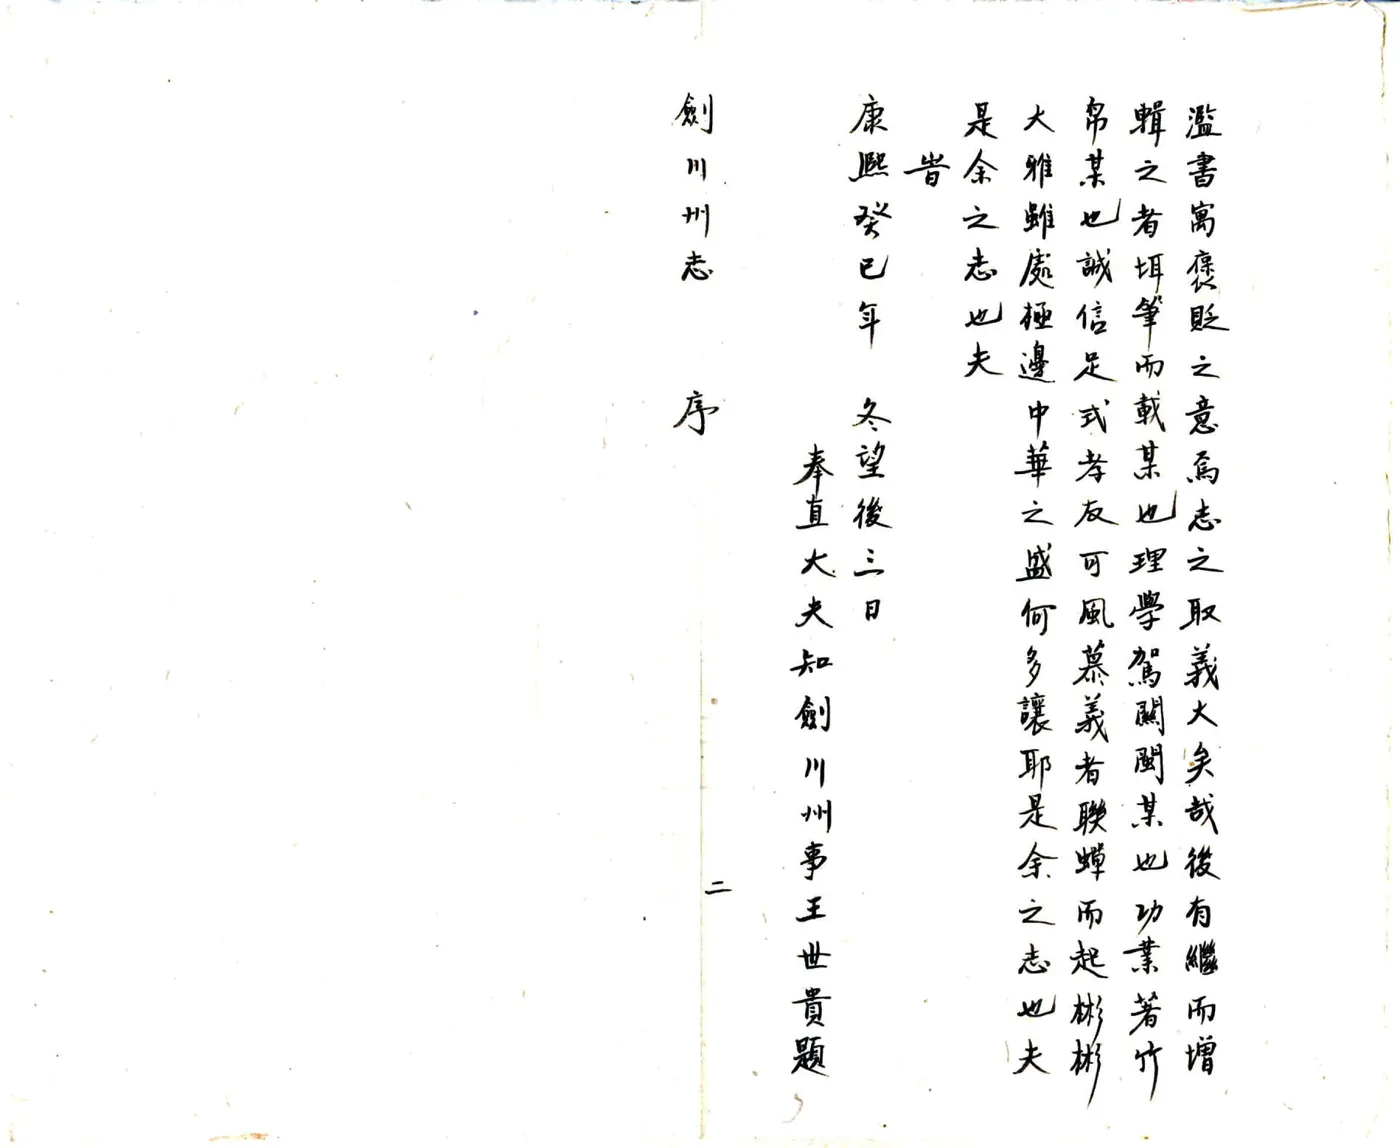 濫書寓褒貶之意焉志之取義大矣哉後有繼而增
輯之者珥筆而載某也理學駕關閩某也功業著竹
帛某也誠信足式孝友可風慕義者聯蟬而起彬彬
大雅雖處極邊中華之盛何多讓耶是余之志也夫
是余之志也夫
旹
康熙癸巳年　冬望後三日
奉直大夫知劍川州事王世貴題
劍川州志　序
二